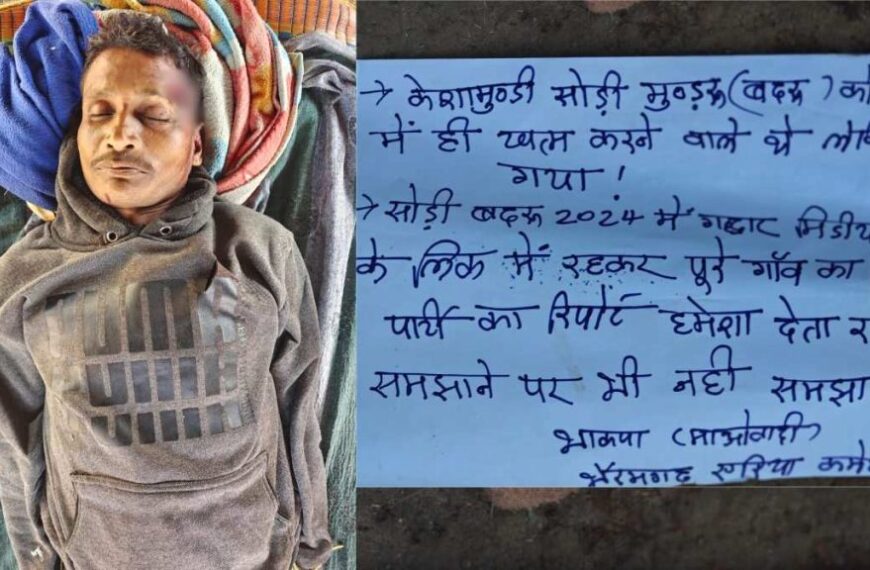 → केशामुण्डी सोड़ी मुण्डरू (बदरू) को
में ही खत्म करने वाले थे
गया !
→ सोड़ी बदरू 2024 में गद्दार मिडीय
के लिंक में रहकर पूरे गॉव का
पार्टी का रिपोर्ट हमेशा देता
समझाने पर भी नही समझा
भाकपा (माओवादी)
भैरमगढ़ एरिया कमे